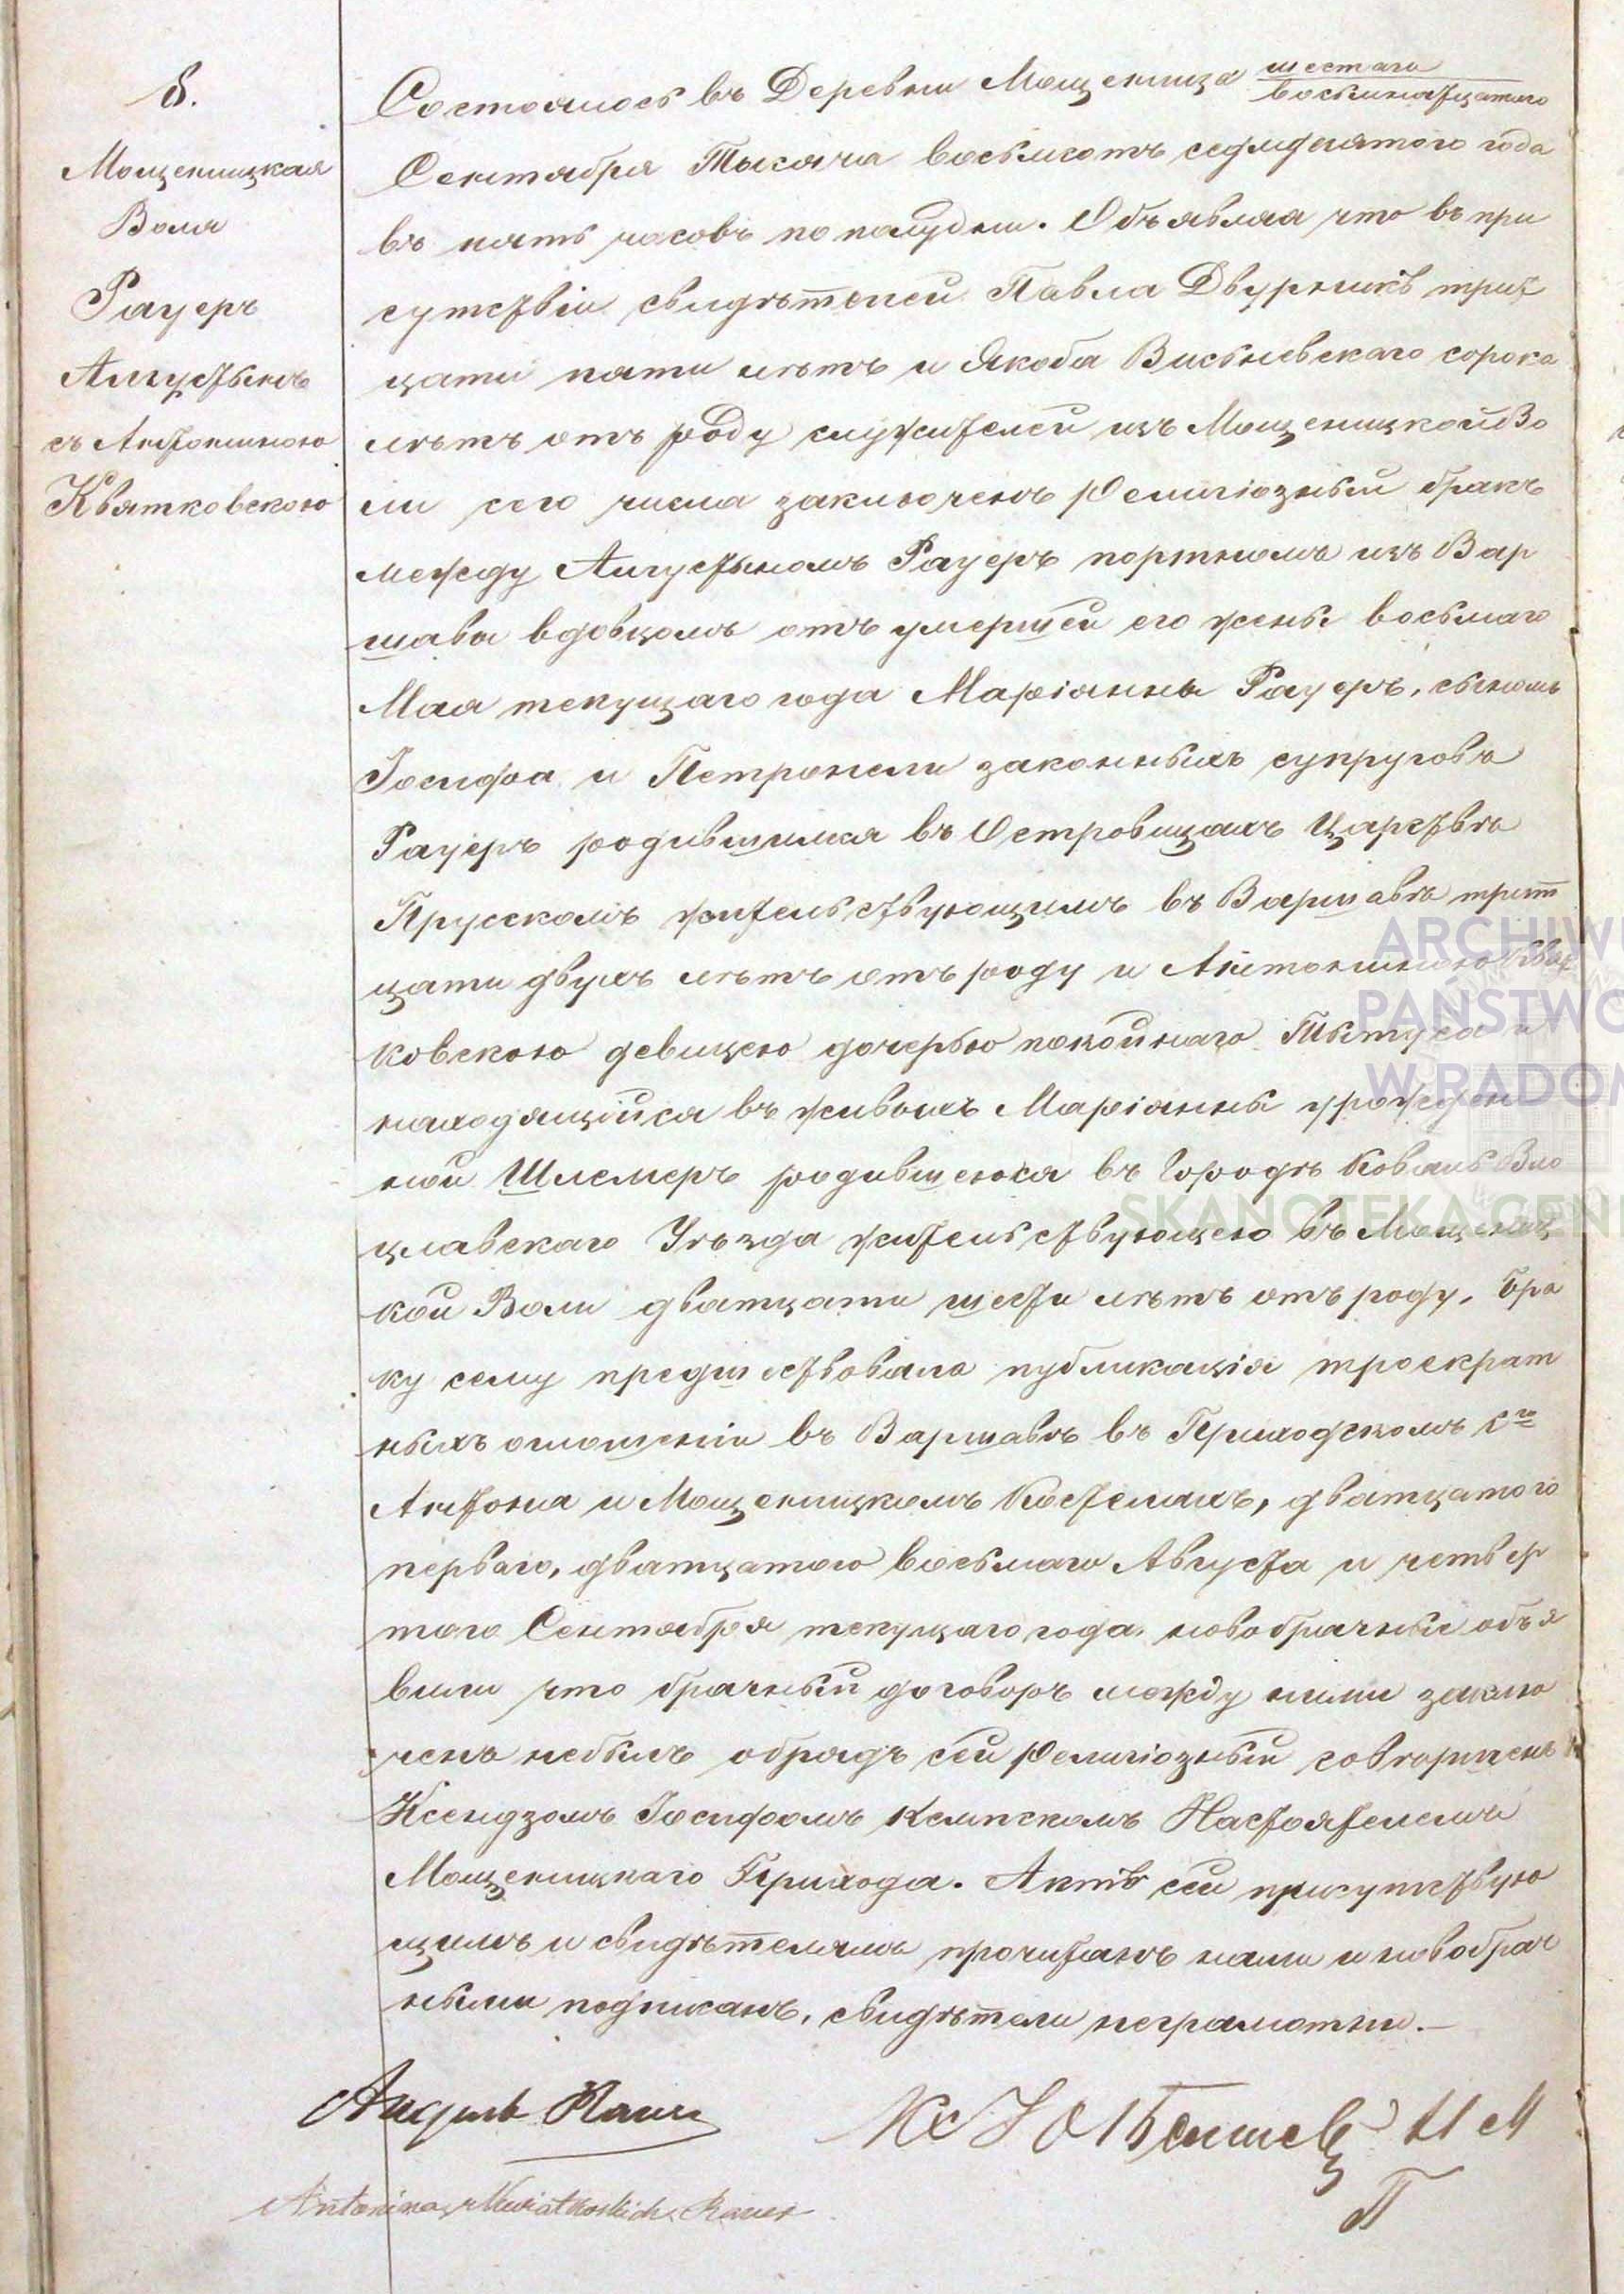 8.
Мощеницкая
Воля
Рауеръ
Августынъ
съ Антониною
Квятковскою
Состоялось въ Деревни Мощеница шестаго
восьмнадцатаго
Сентября Тысяча восьмсотъ седмдѣятого года
въ пять часовъ по полудни. Объявляя что въ при
сутствіи свидѣтелей Павла Двурникъ трид
цати пяти лѣтъ и Якоба Висьневскаго сорока
лѣтъ отъ роду служителей изъ Мощеницкой Во
ли сего числа заключенъ Религіозный бракъ
между Августыномъ Рауеръ портнымъ изъ Вар
шавы вдовцомъ отъ умершей его жены восьмаго
Мая текущаго года Маріанны Рауеръ, сыномъ
Іосифа и Петронели законныхъ супруговъ
Рауеръ родившимся въ Островицахъ Царствѣ
Прусскомъ жительствующимъ въ Варшавѣ трит
цати двухъ лѣтъ отъ роду и Антониною Квят
ковскою девицею дочерью покойнаго Тытуса и
находящійся въ живыхъ Маріанны урожден
ной Шлемеръ родившеюся въ Городѣ Коваль Вло
цлавскаго Уѣзда жительствующею въ Мощениц
кой Воли дватцати шести лѣтъ отъ роду. Бра
ку сему предшествовала публикація троекрат
ныхъ оглошеній въ Варшавѣ въ Приходскомъ Сго
Антонія и Мощеницкомъ Костелахъ, дватцатого
перваго, дватцатого восьмаго Августа и четвер
того Сентября текущаго года. новобрачные объя
вили что брачный договоръ между ними заклю
ченъ небылъ обрядъ сей Религіозный совторшенъ
Ксендзомъ Іосифомъ Кемпскомъ Настоятелемъ
Мощеницкаго Прихода. Актъ сей присутствую
щимъ и свидѣтелямъ прочитанъ нами и новобрач
ными подписанъ, свидѣтели неграмотны.—
Rauer
Кс
Н М
Antonina z Kwiatkoskich Rauer
П
ARCHIW
PAŃSTWO
W RADOM
SKANOTEKA GEN